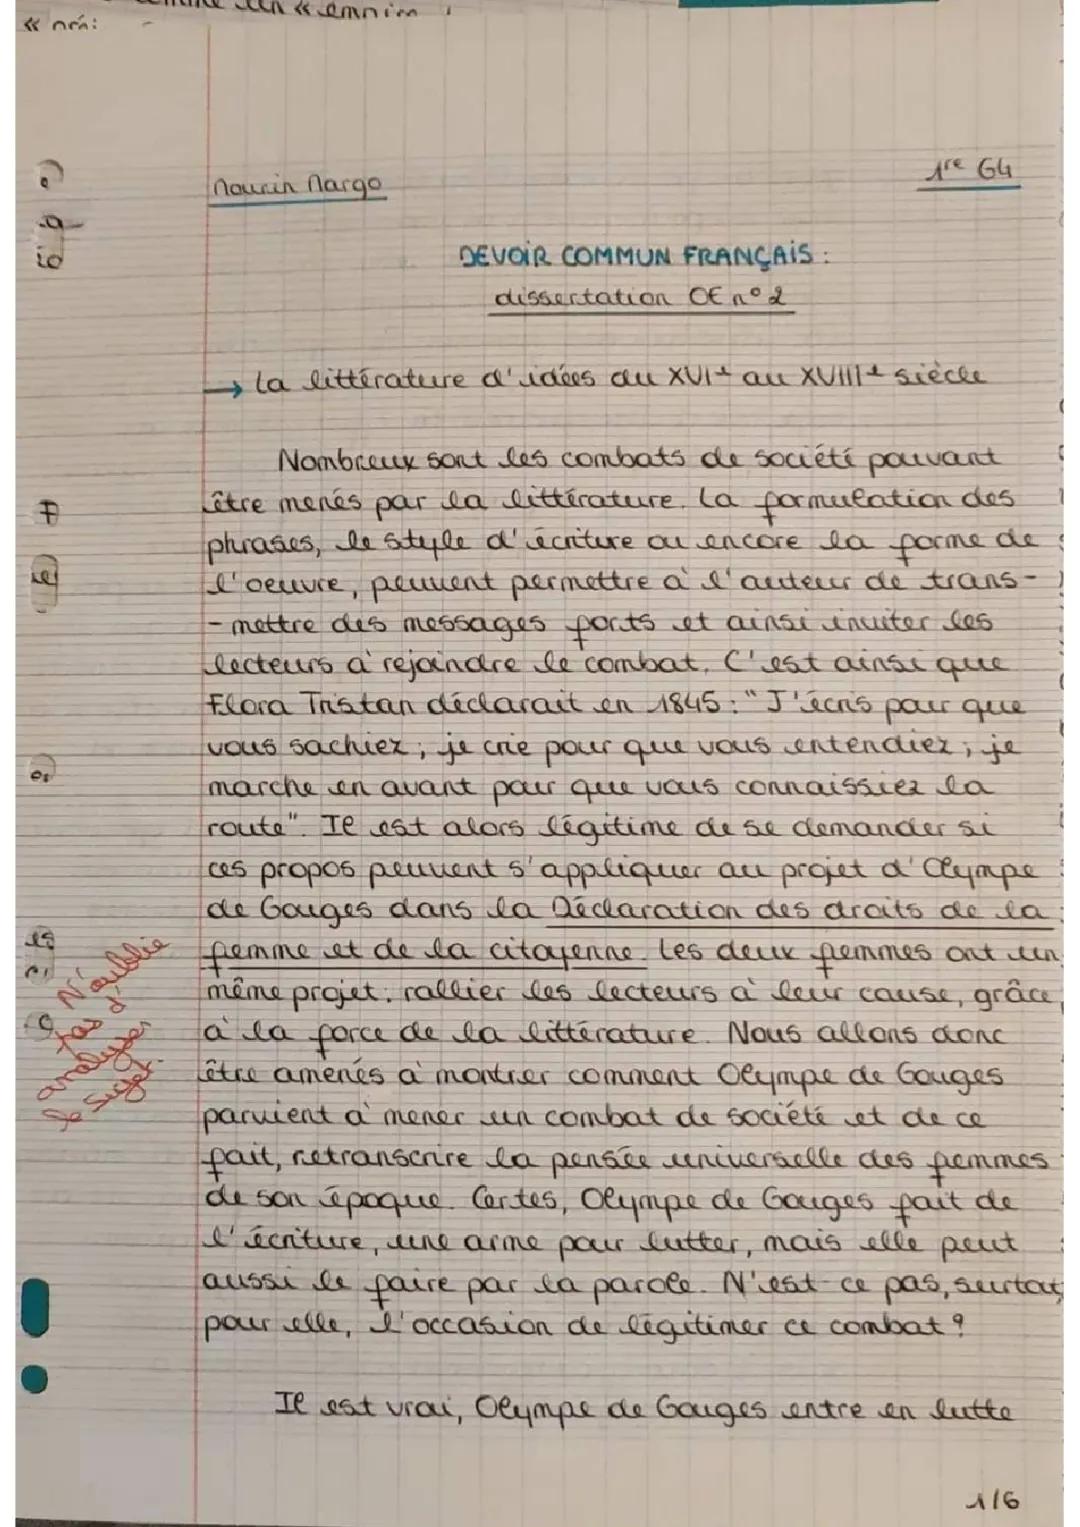 « emnim
Mourin Margo
1re G4
DEVOIR COMMUN FRANÇAIS :
dissertation OE n°2
→ La littérature d'idées du XVIe au XVIIIe siècle
Nombreux sont les combats de société pouvant
être menés par la littérature. La formulation des
phrases, le style d'écriture ou encore la forme de
l'oeuvre, peuvent permettre à l'auteur de trans-
-mettre des messages forts et ainsi inviter les
lecteurs à rejoindre le combat. C'est ainsi que
Flora Tristan déclarait en 1845 : "J'écris pour que
vous sachiez ; je crie pour que vous entendiez ; je
marche en avant pour que vous connaissiez la
route". Il est alors légitime de se demander si
ces propos peuvent s'appliquer au projet d'Olympe
de Gouges dans la Déclaration des droits de la
femme et de la citoyenne. Les deux femmes ont un
même projet : rallier les lecteurs à leur cause, grâce
à la force de la littérature. Nous allons donc
être amenés à montrer comment Olympe de Gouges
parvient à mener un combat de société et de ce
fait, retranscrire la pensée universelle des femmes
de son époque. Certes, Olympe de Gouges fait de
l'écriture, une arme pour lutter, mais elle peut
aussi le faire par la parole. N'est-ce pas, surtout
pour elle, l'occasion de légitimer ce combat ?
N'oublie
pas d'
analyser
le sujet.
Il est vrai, Olympe de Gouges entre en lutte
1/6